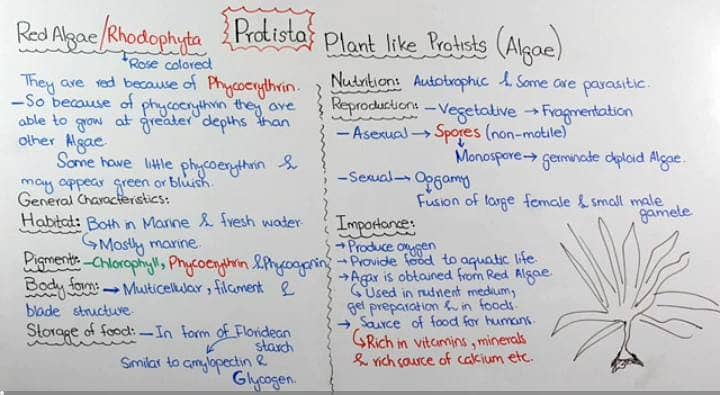 Red Algae/Rhodophyta
Protista
Plant like Protists (Algae)
Rose colored
They are red because of Phycoerythrin.
-So because of phycoerythrin they are
able to grow at greater depths than
other Algae.
Some have little phycoerythrin &
may appear green or bluish.
General Characteristics:
Habitat: Both in Marine & fresh water.
Mostly marine.
Pigments -Chlorophyll, Phycoerythrin & Phycocyanin
Body form: → Multicellular, filament &
blade structure.
Storage of food: - In form of Floridean
starch
Similar to amylopectin &
Glycogen.
Nutrition: Autotrophic & Some are parasitic.
Reproduction: - Vegetative → Fragmentation
- Asexual → Spores (non-motile)
Monospore → germinate diploid Algae.
- Sexual → Oogamy
Fusion of large female & small male
gamete
Importance:
→ Produce oxygen
→ Provide food to aquatic life.
→ Agar is obtained from Red Algae.
Used in nutrient medium,
gel preparation & in foods.
→ Source of food for humans.
Rich in vitamins, minerals
& rich source of calcium etc.